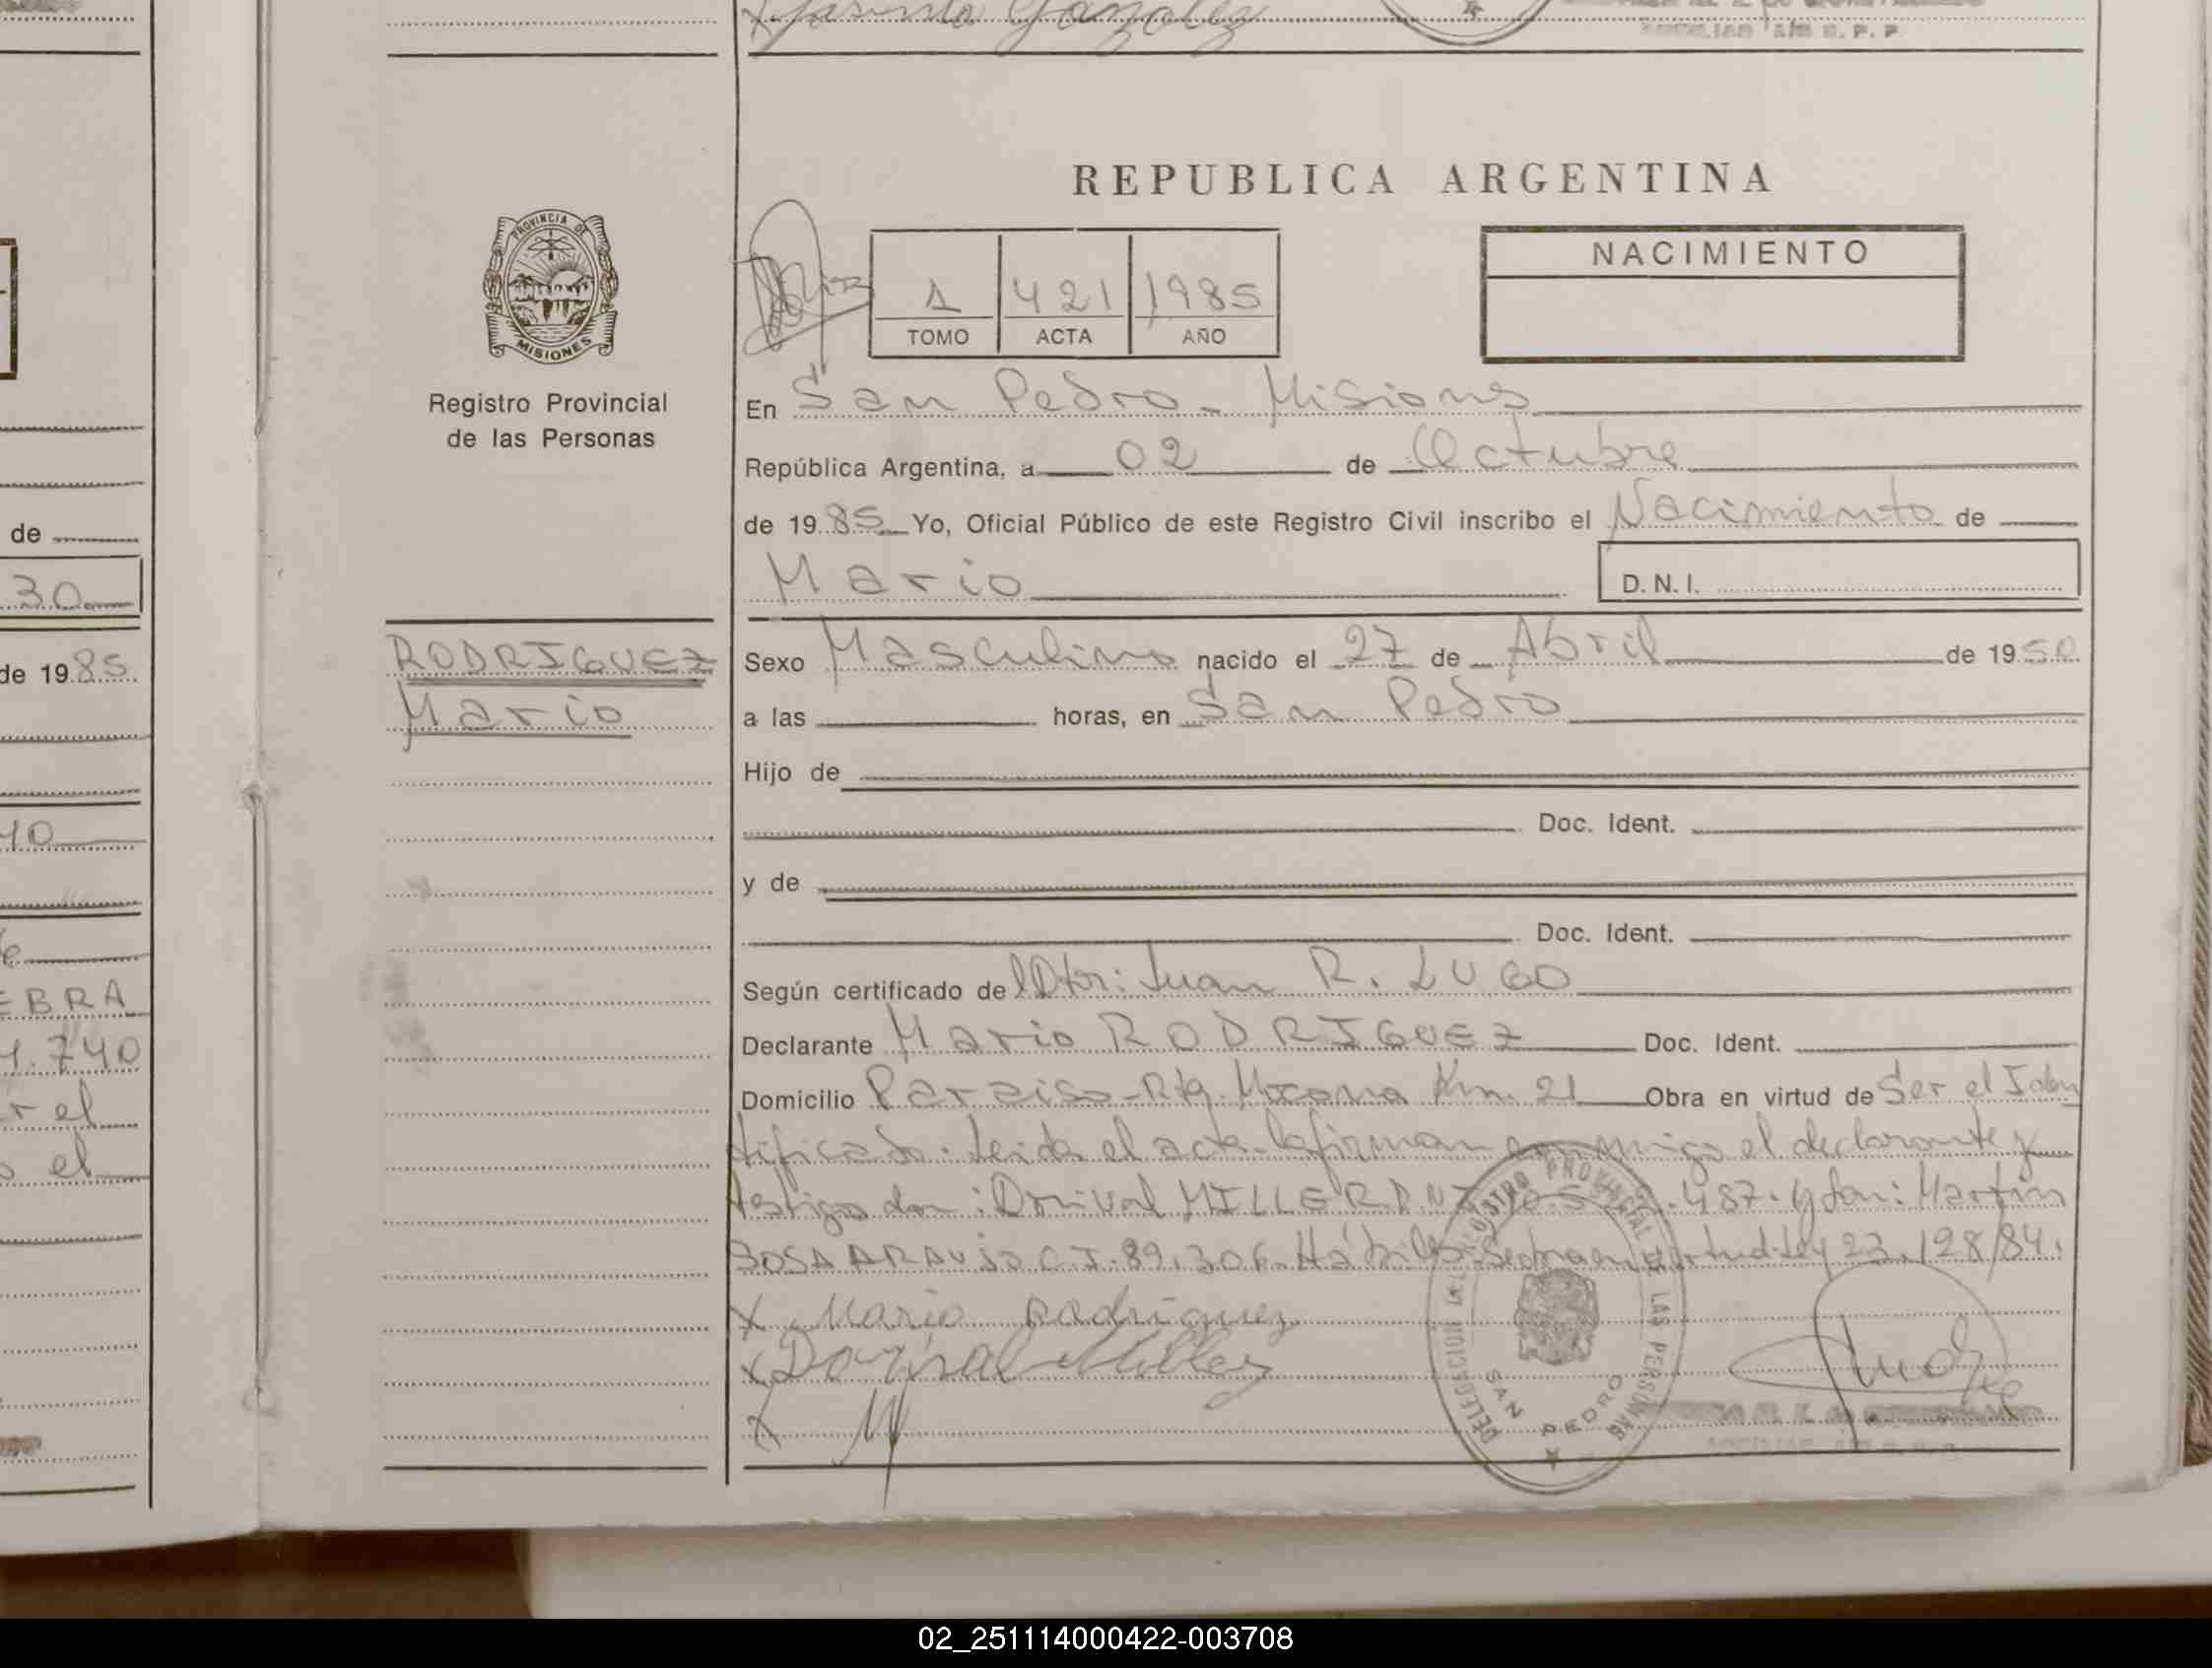 Jasinta Gonzalez
REPUBLICA ARGENTINA
PROVINCIA DE
MISIONES
NACIMIENTO
1 421 1985
TOMO ACTA AÑO
Registro Provincial
de las Personas
En San Pedro - Misiones
República Argentina, a 02 de Octubre
de 1985 Yo, Oficial Público de este Registro Civil inscribo el Nacimiento de
Mario D.N.I.
RODRIGUEZ
Mario
Sexo Masculino nacido el 27 de Abril de 1950
a las horas, en San Pedro
Hijo de
Doc. Ident.
y de
Doc. Ident.
Según certificado del Dtor: Juan R. LUGO
Declarante Mario RODRIGUEZ Doc. Ident.
Domicilio Paraiso - Rta. Km. 21 Obra en virtud de Ser el Iden
tificado. Leida el acta la firman conmigo el declarante y
testigos don: Dorival MILLER D.N.I. 487. y don: Martin
SOSA ARAUJO C.I. 89.306. Hábiles. Se obra en virtud Ley 23.128/84.
x Mario Rodriguez
x Dorival Miller
x
DELEGACION REGISTRO PROVINCIAL DE LAS PERSONAS
SAN PEDRO
de
30
de 1985
10
EBRA
1.740
r el
o el
02_251114000422-003708